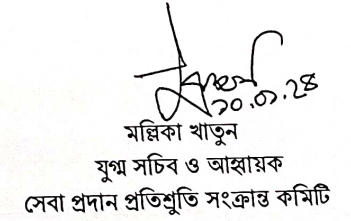 মল্লিকা খাতুন
যুগ্ম সচিব ও আহ্বায়ক
সেবা প্রদান প্রতিশ্রুতি সংক্রান্ত কমিটি